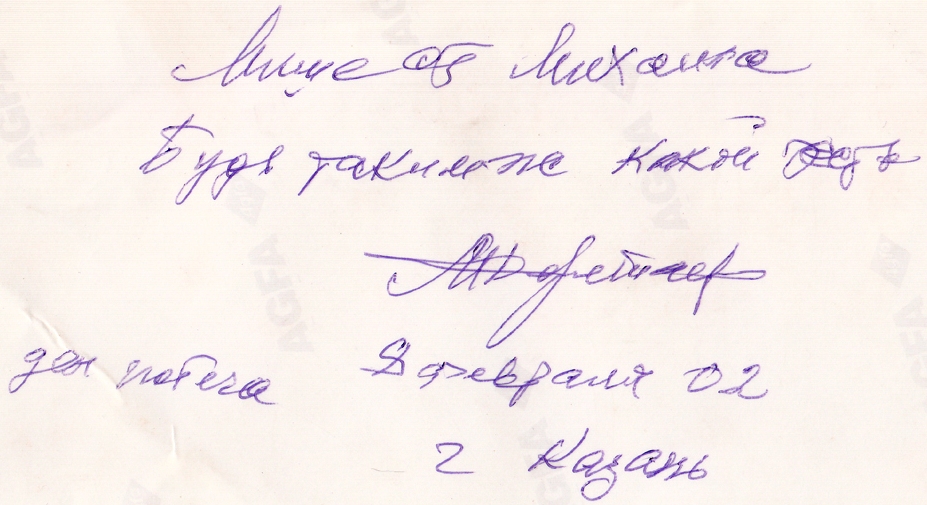 Мише от Михаила
Будь таким же какой есть
дом потеха 8 февраля 02
г Казань
AGFA
AGFA
AGFA
AGFA